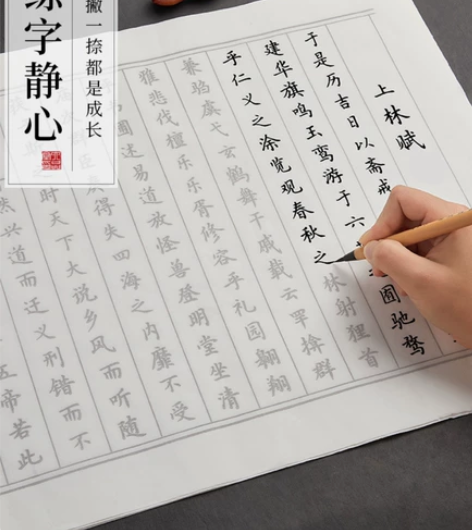 字静心
一捺都是成长
上林赋
于是历吉日以斋戒
建华旗鸣玉鸾游于六 之囿驰骛
乎仁义之涂览观春秋之林射狸首
兼驺虞弋玄鹤舞干戚载云罕揜群
雅悲伐檀乐乐胥修容乎礼园翱翔
圃述易道放怪兽登明堂坐清
得失四海之内靡不受
时天下大说乡风而听随
然兴道而迁义刑错而不
帝若此